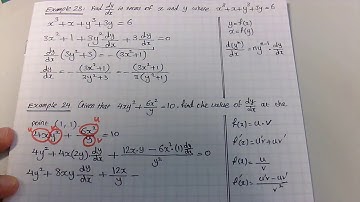 Example 23: Find dy/dx in terms of x and y where x³+x+y³+3y=6
x³+x+y³+3y=6
3x²+1+3y² dy/dx + 3 dy/dx = 0
dy/dx (3y²+3) = -(3x²+1)
dy/dx = -(3x²+1)/(3y²+3) = -(3x²+1)/3(y²+1)
y=f(x)
x=f(y)
d(yⁿ)/dx = nyⁿ⁻¹ dy/dx
Example 24: Given that 4xy²+6x²/y=10, find the value of dy/dx at the
point (1, 1)
4xy² + 6x²/y = 10
u v u v
4y²+4x(2y) dy/dx + (12x·y - 6x²·(1) dy/dx)/y² = 0
4y²+8xy dy/dx + 12x/y -
f(x)=u·v
f'(x)=u'v+uv'
f(x)=u/v
f'(x)=(u'v-uv')/v²